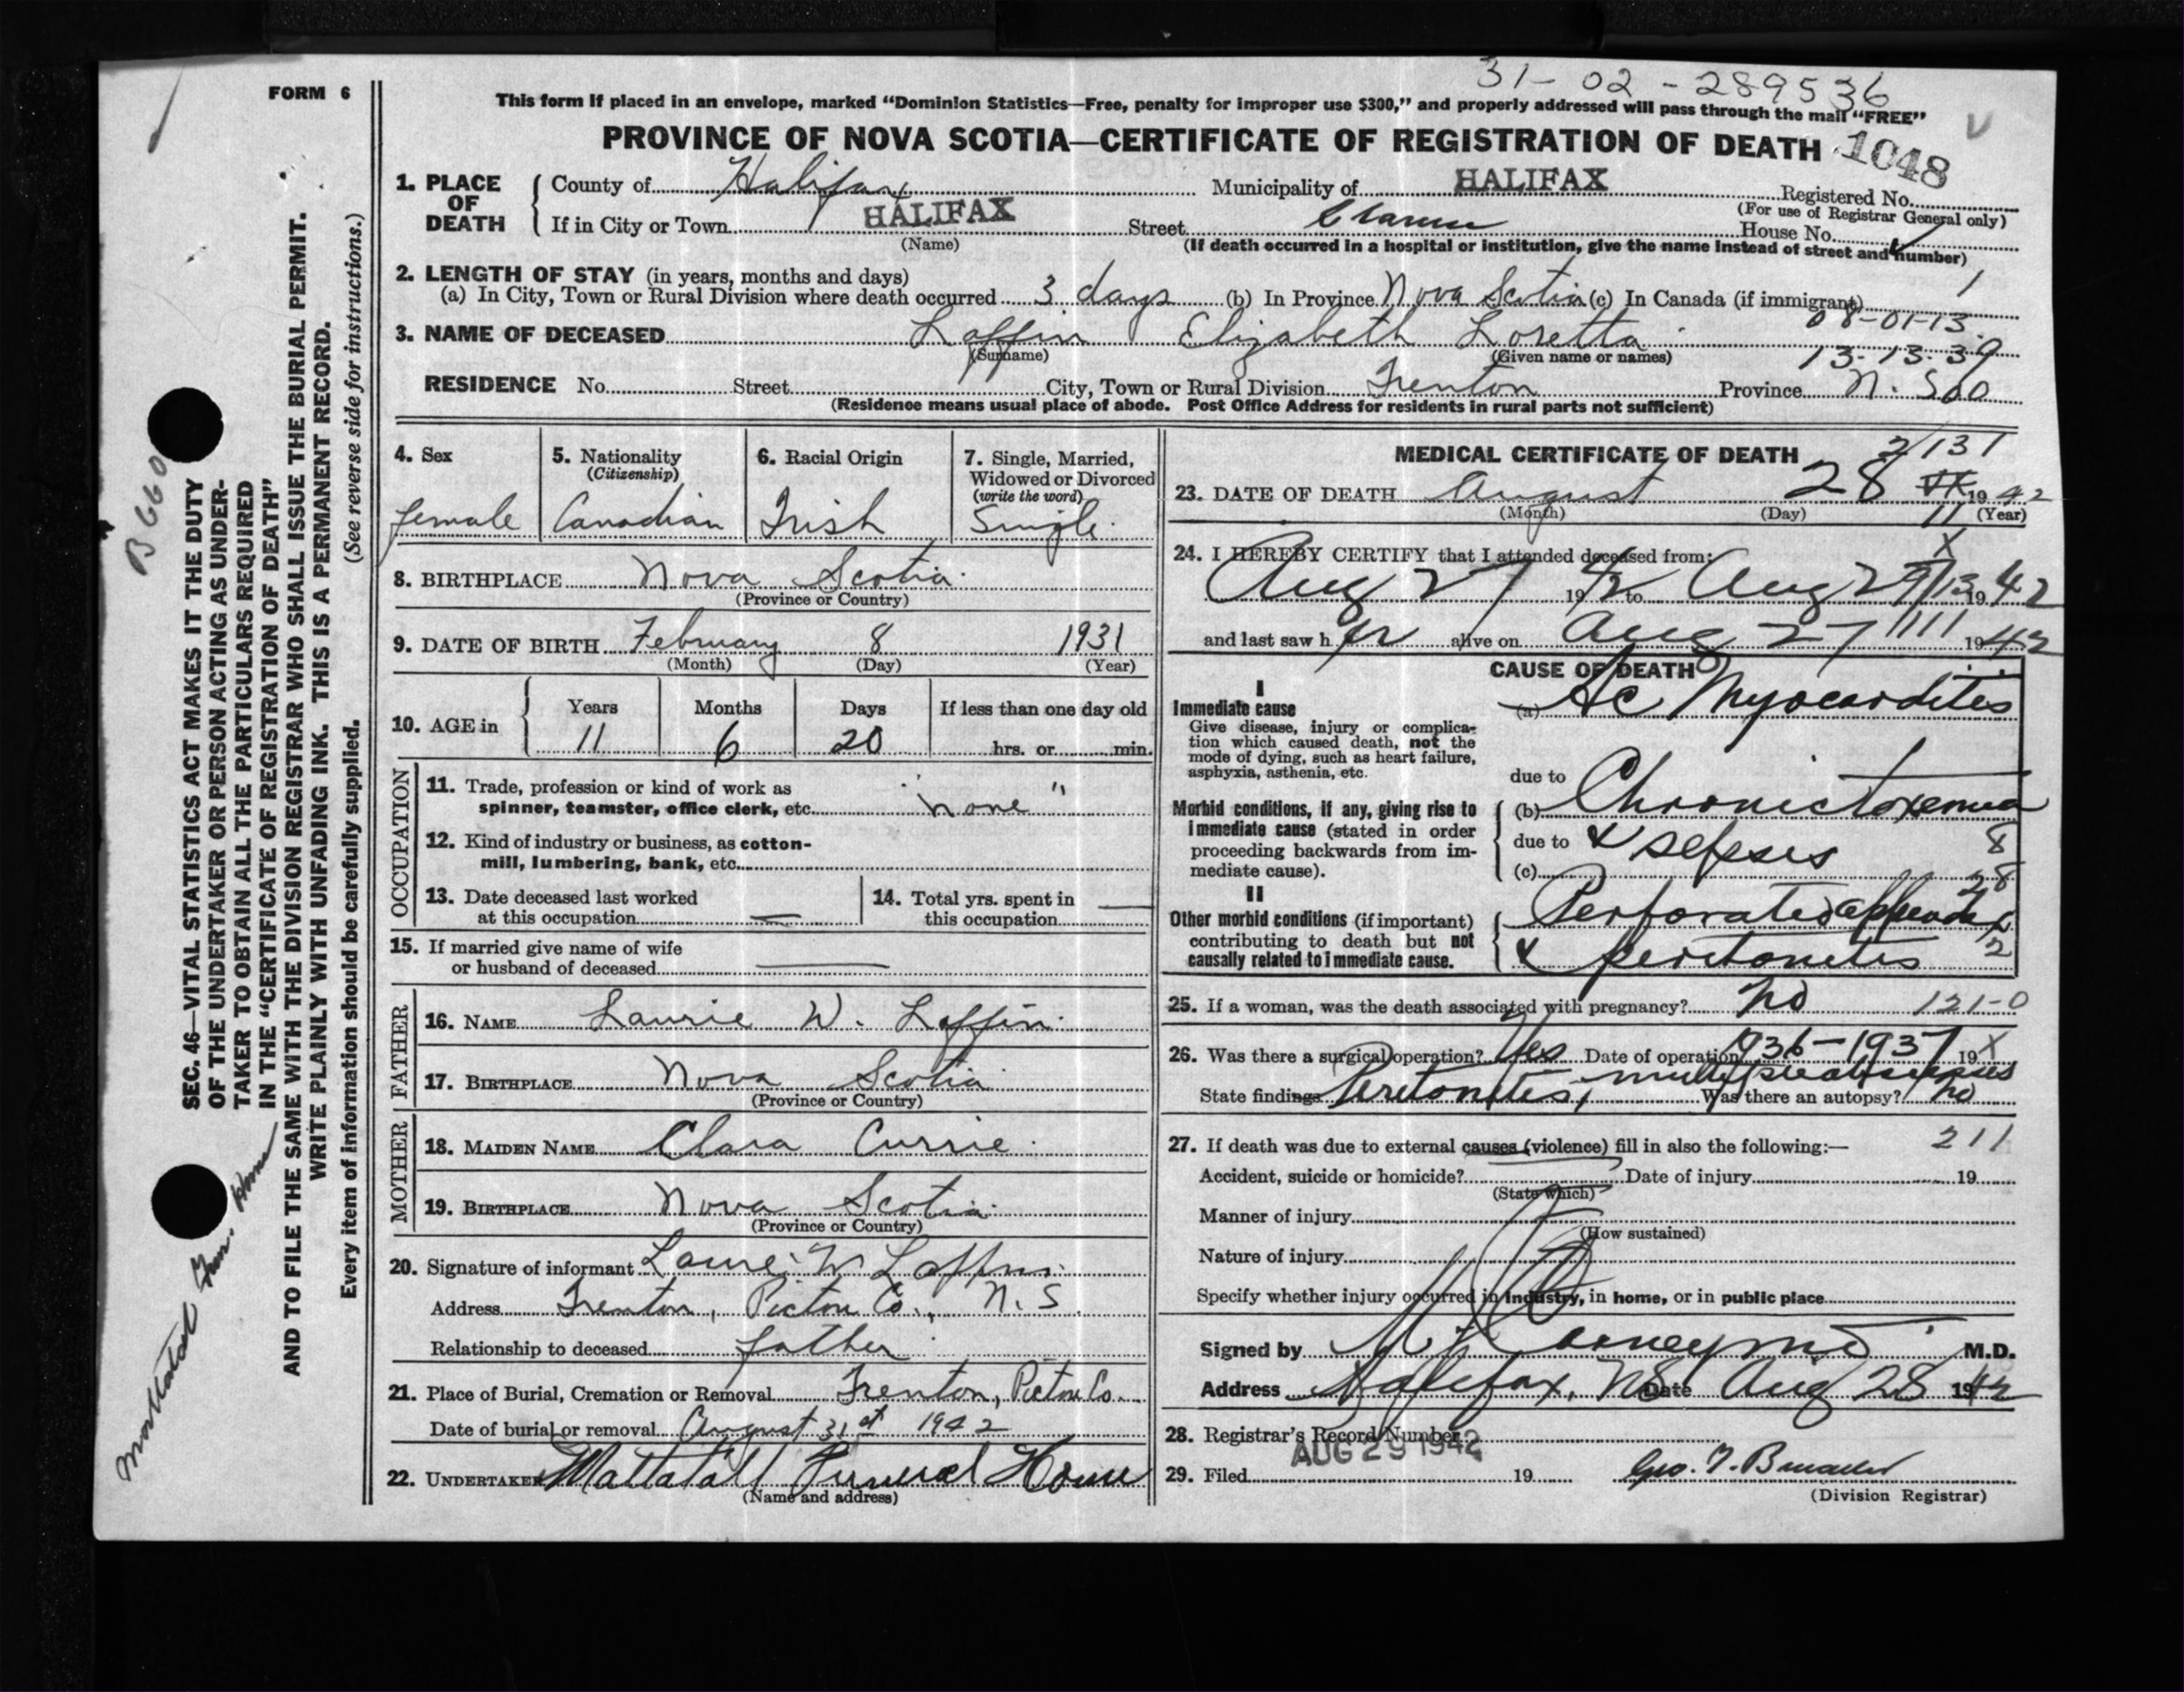 31-02-289536
FORM 6
This form if placed in an envelope, marked “Dominion Statistics—Free, penalty for improper use $300,” and properly addressed will pass through the mail “FREE”
PROVINCE OF NOVA SCOTIA—CERTIFICATE OF REGISTRATION OF DEATH 1048
1. PLACE OF DEATH
County of Halifax Municipality of HALIFAX Registered No.
(For use of Registrar General only)
If in City or Town HALIFAX Street House No.
(Name) (If death occurred in a hospital or institution, give the name instead of street and number)
2. LENGTH OF STAY (in years, months and days)
(a) In City, Town or Rural Division where death occurred 3 days (b) In Province Nova Scotia (c) In Canada (if immigrant) 1
08-01-13
3. NAME OF DECEASED Laffin Elizabeth Loretta
(Surname) (Given name or names) 13-13-39
RESIDENCE No. Street City, Town or Rural Division Trenton Province N. S.
(Residence means usual place of abode. Post Office Address for residents in rural parts not sufficient)
4. Sex
female
5. Nationality
(Citizenship)
Canadian
6. Racial Origin
Irish
7. Single, Married,
Widowed or Divorced
(write the word)
Single
8. BIRTHPLACE Nova Scotia
(Province or Country)
9. DATE OF BIRTH February 8 1931
(Month) (Day) (Year)
10. AGE in
Years Months Days If less than one day old
11 6 20 hrs. or min.
OCCUPATION
11. Trade, profession or kind of work as
spinner, teamster, office clerk, etc. "none"
12. Kind of industry or business, as cotton-
mill, lumbering, bank, etc.
13. Date deceased last worked
at this occupation —
14. Total yrs. spent in
this occupation —
15. If married give name of wife
or husband of deceased —
FATHER
16. NAME Laurie W. Laffin
17. BIRTHPLACE Nova Scotia
(Province or Country)
MOTHER
18. MAIDEN NAME Clara Currie
19. BIRTHPLACE Nova Scotia
(Province or Country)
20. Signature of informant Laurie W Laffin
Address Trenton, Pictou Co., N. S.
Relationship to deceased father
21. Place of Burial, Cremation or Removal Trenton, Pictou Co.
Date of burial or removal August 31st 1942
22. UNDERTAKER Mattatall Funeral Home
(Name and address)
MEDICAL CERTIFICATE OF DEATH
23. DATE OF DEATH August 28 1942
(Month) (Day) (Year)
24. I HEREBY CERTIFY that I attended deceased from:
Aug 27 1942 to Aug 27 1942
and last saw her alive on Aug 27 1942
CAUSE OF DEATH
I
Immediate cause
Give disease, injury or complica-
tion which caused death, not the
mode of dying, such as heart failure,
asphyxia, asthenia, etc.
(a) Ac Myocarditis
due to
Morbid conditions, if any, giving rise to
immediate cause (stated in order
proceeding backwards from im-
mediate cause).
(b) Chronic toxemia
due to & sepsis
(c)
II
Other morbid conditions (if important)
contributing to death but not
causally related to immediate cause.
Perforated appendix
& peritonitis
25. If a woman, was the death associated with pregnancy? No 121-0
26. Was there a surgical operation? Yes Date of operation 1936-1937 19
State findings Peritonitis, Was there an autopsy? no
27. If death was due to external causes (violence) fill in also the following:— 211
Accident, suicide or homicide? Date of injury 19
(State which)
Manner of injury
(How sustained)
Nature of injury
Specify whether injury occurred in industry, in home, or in public place
Signed by M.D.
Address Halifax, NS Date Aug 28 1942
28. Registrar's Record Number
29. Filed AUG 29 1942 19
(Division Registrar)
B 660
SEC. 46—VITAL STATISTICS ACT MAKES IT THE DUTY
OF THE UNDERTAKER OR PERSON ACTING AS UNDER-
TAKER TO OBTAIN ALL THE PARTICULARS REQUIRED
IN THE “CERTIFICATE OF REGISTRATION OF DEATH”
AND TO FILE THE SAME WITH THE DIVISION REGISTRAR WHO SHALL ISSUE THE BURIAL PERMIT.
WRITE PLAINLY WITH UNFADING INK. THIS IS A PERMANENT RECORD.
Every item of information should be carefully supplied. (See reverse side for instructions.)
Mattatall Fun. Home